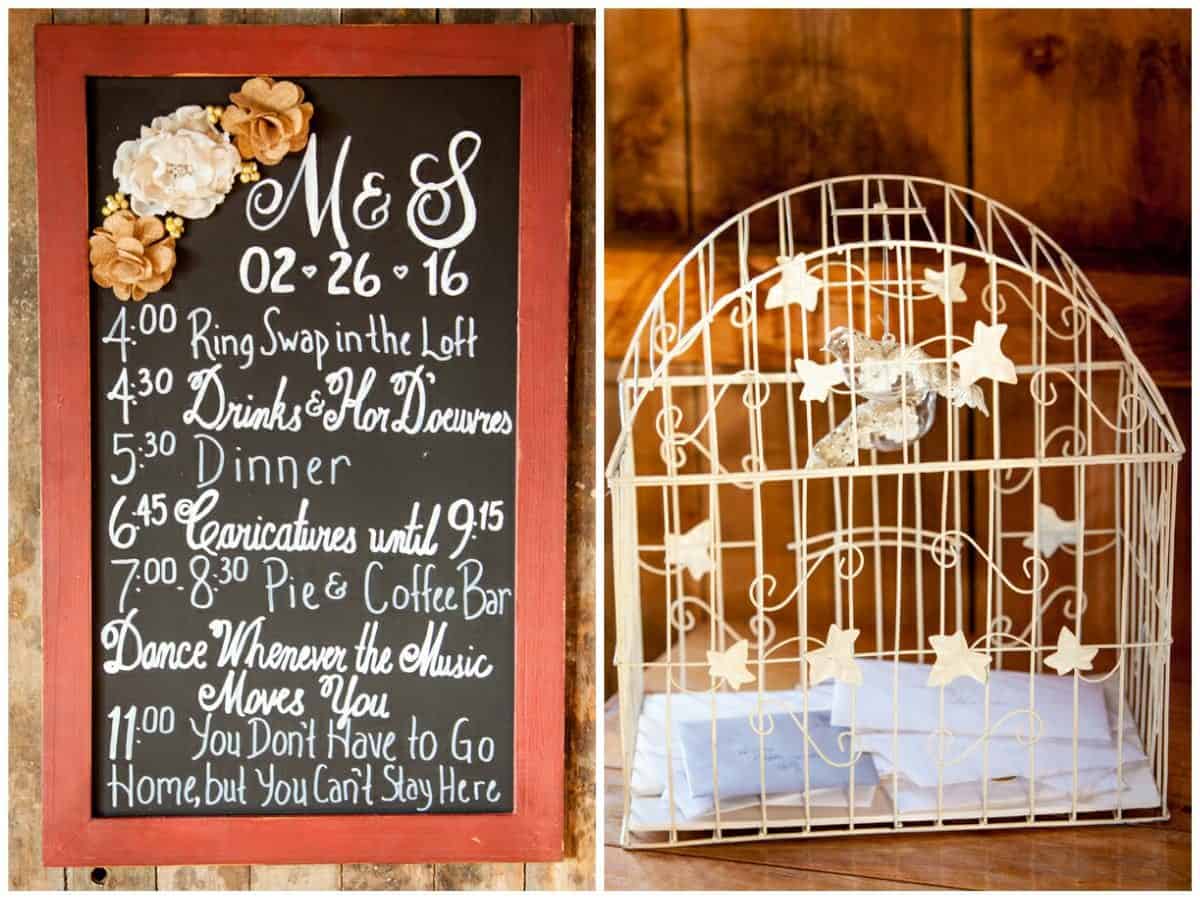 M & S
02 ♥ 26 ♥ 16
4:00 Ring Swap in the Loft
4:30 Drinks & Hor D'oeuvres
5:30 Dinner
6:45 Caricatures until 9:15
7:00-8:30 Pie & Coffee Bar
Dance Whenever the Music
Moves You
11:00 You Don't Have to Go
Home, but You Can't Stay Here